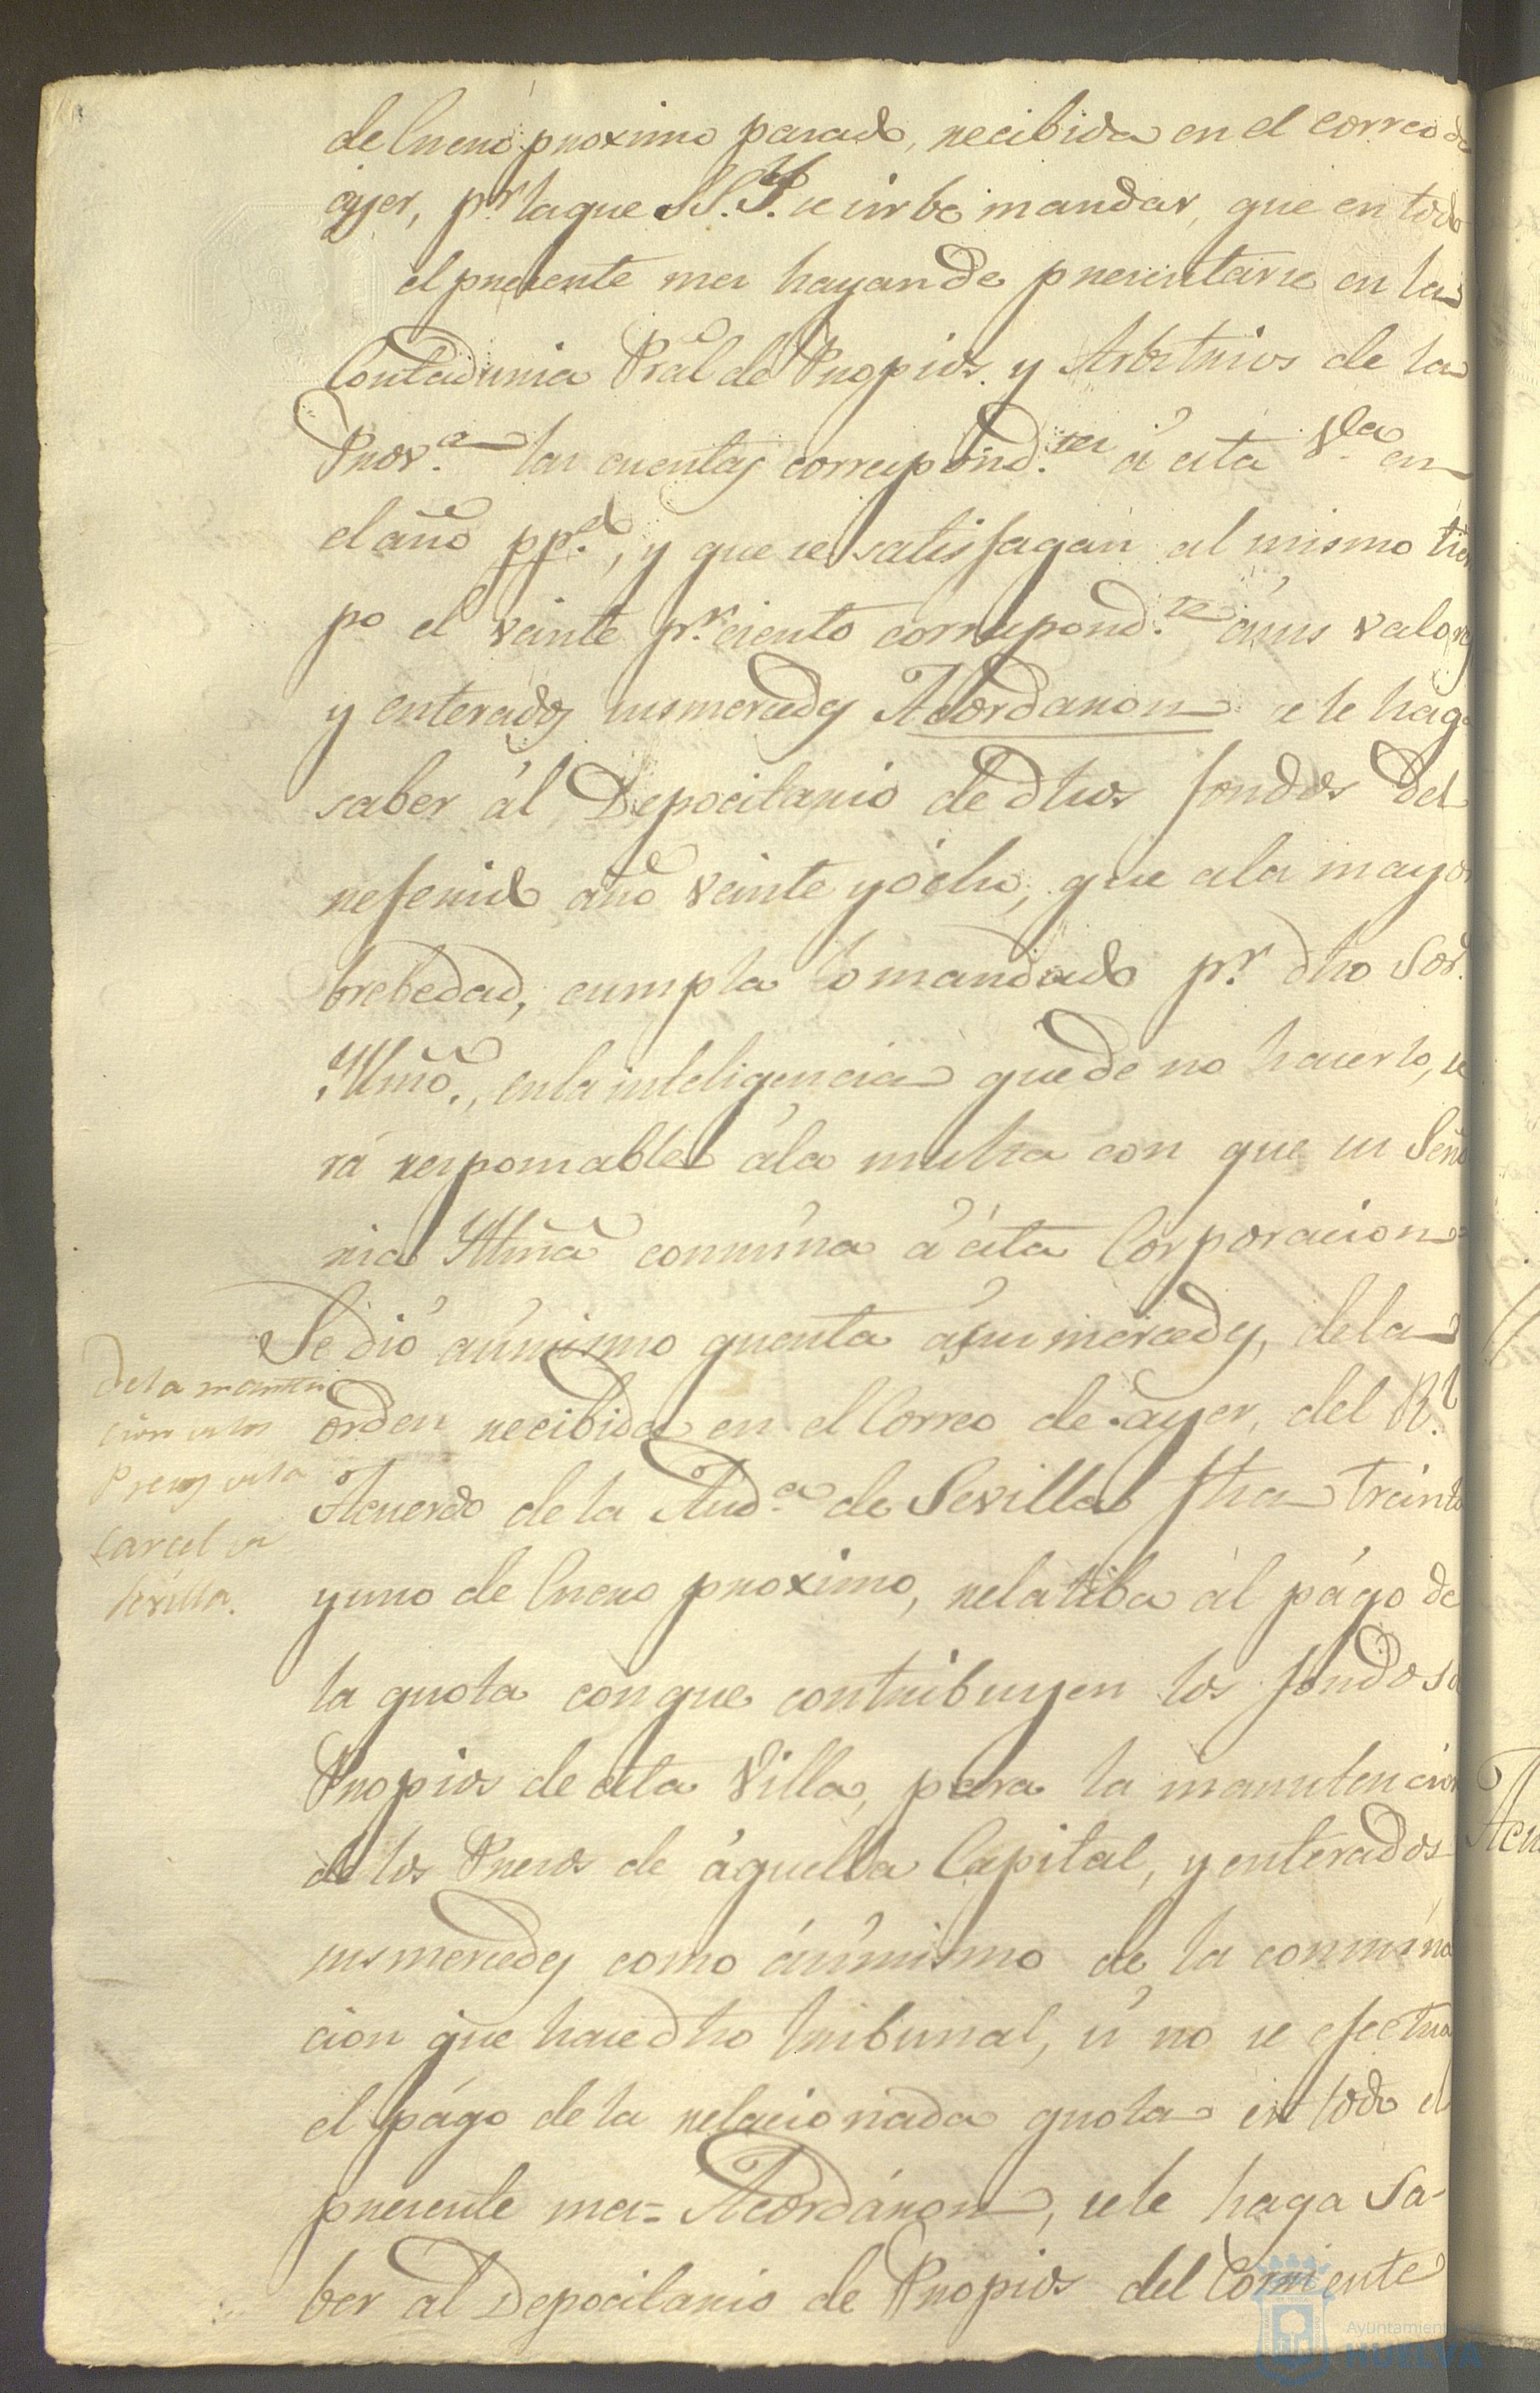 de Enero proximo pasado, recibida en el correo de
ayer, p.r la que S.S.Y. se sirbe mandar, que en todo
el presente mes hayan de presentarse en la
Contaduria Pral de Propios y Arbitrios de la
Prov.a las cuentas correspond.tes á esta V.la en
el año pp.do, y que se satisfagan al mismo tiem
po el veinte p.r ciento correspond.te á sus valores
y enterados sus mercedes Acordaron se le haga
saber ál Depocitario de dhos fondos del
referido año veinte y ócho, que a la mayor
brebedad, cumpla lo mandado p.r dho Sor.
Yllmo., en la inteligencia que de no hacerlo, se
rá responsable á la multa con que su Seño
ria Yllma conmina á ésta Corporacion
Se dió asímismo quenta á sus mercedes, de la
orden recibida en el Correo de ayer, del R.l
Acuerdo de la Aud.a de Sevilla fha treinta
y uno de Enero proximo, relatiba ál págo de
la quota con que contribuyen los fondos de
Propios de esta Villa, para la manutencion
de los Presos de áquella Capital, y enterados
sus mercedes como ásímismo de la conmina
cion que hace dho tribunal, si no se efectua
el págo de la relacionada quota en todo el
presente mes= Acordáron, se le haga sa-
ber al Depocitario de Propios del Corriente
De la manten
cion de los
Presos de la
Carcel de
Sevilla.
Acu
Ayuntamiento de
HUELVA